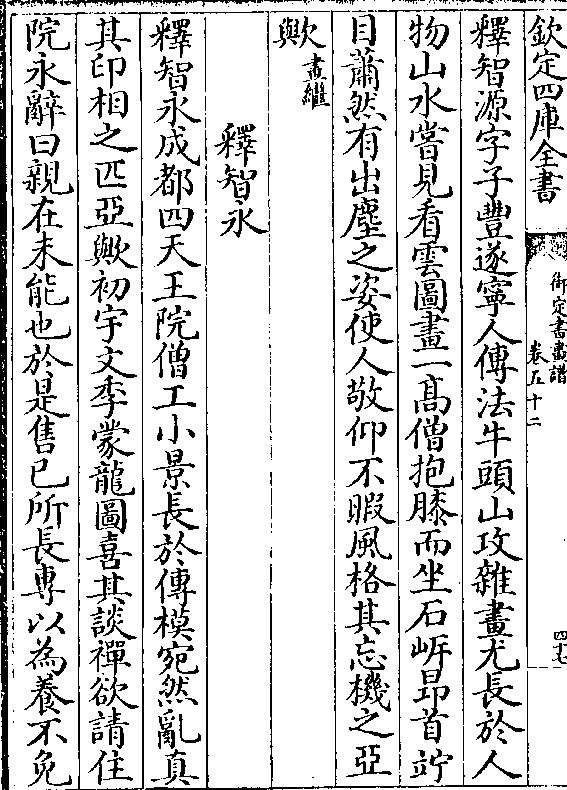 欽定四庫全書
御定書畫譜
卷五十二
釋智源字子豐遂寧人傳法牛頭山攻雜畫尤長於人
物山水嘗見看雲圖畫一髙僧抱膝而坐石岸昂首竚
目蕭然有出塵之姿使人敬仰不暇風格其忘機之亞
歟畫繼
釋智永
釋智永成都四天王院僧工小景長於傳模宛然亂真
其印相之匹亞歟初宇文季蒙龍圖喜其談禪欲請住
院永辭曰親在未能也於是售已所長專以為養不免